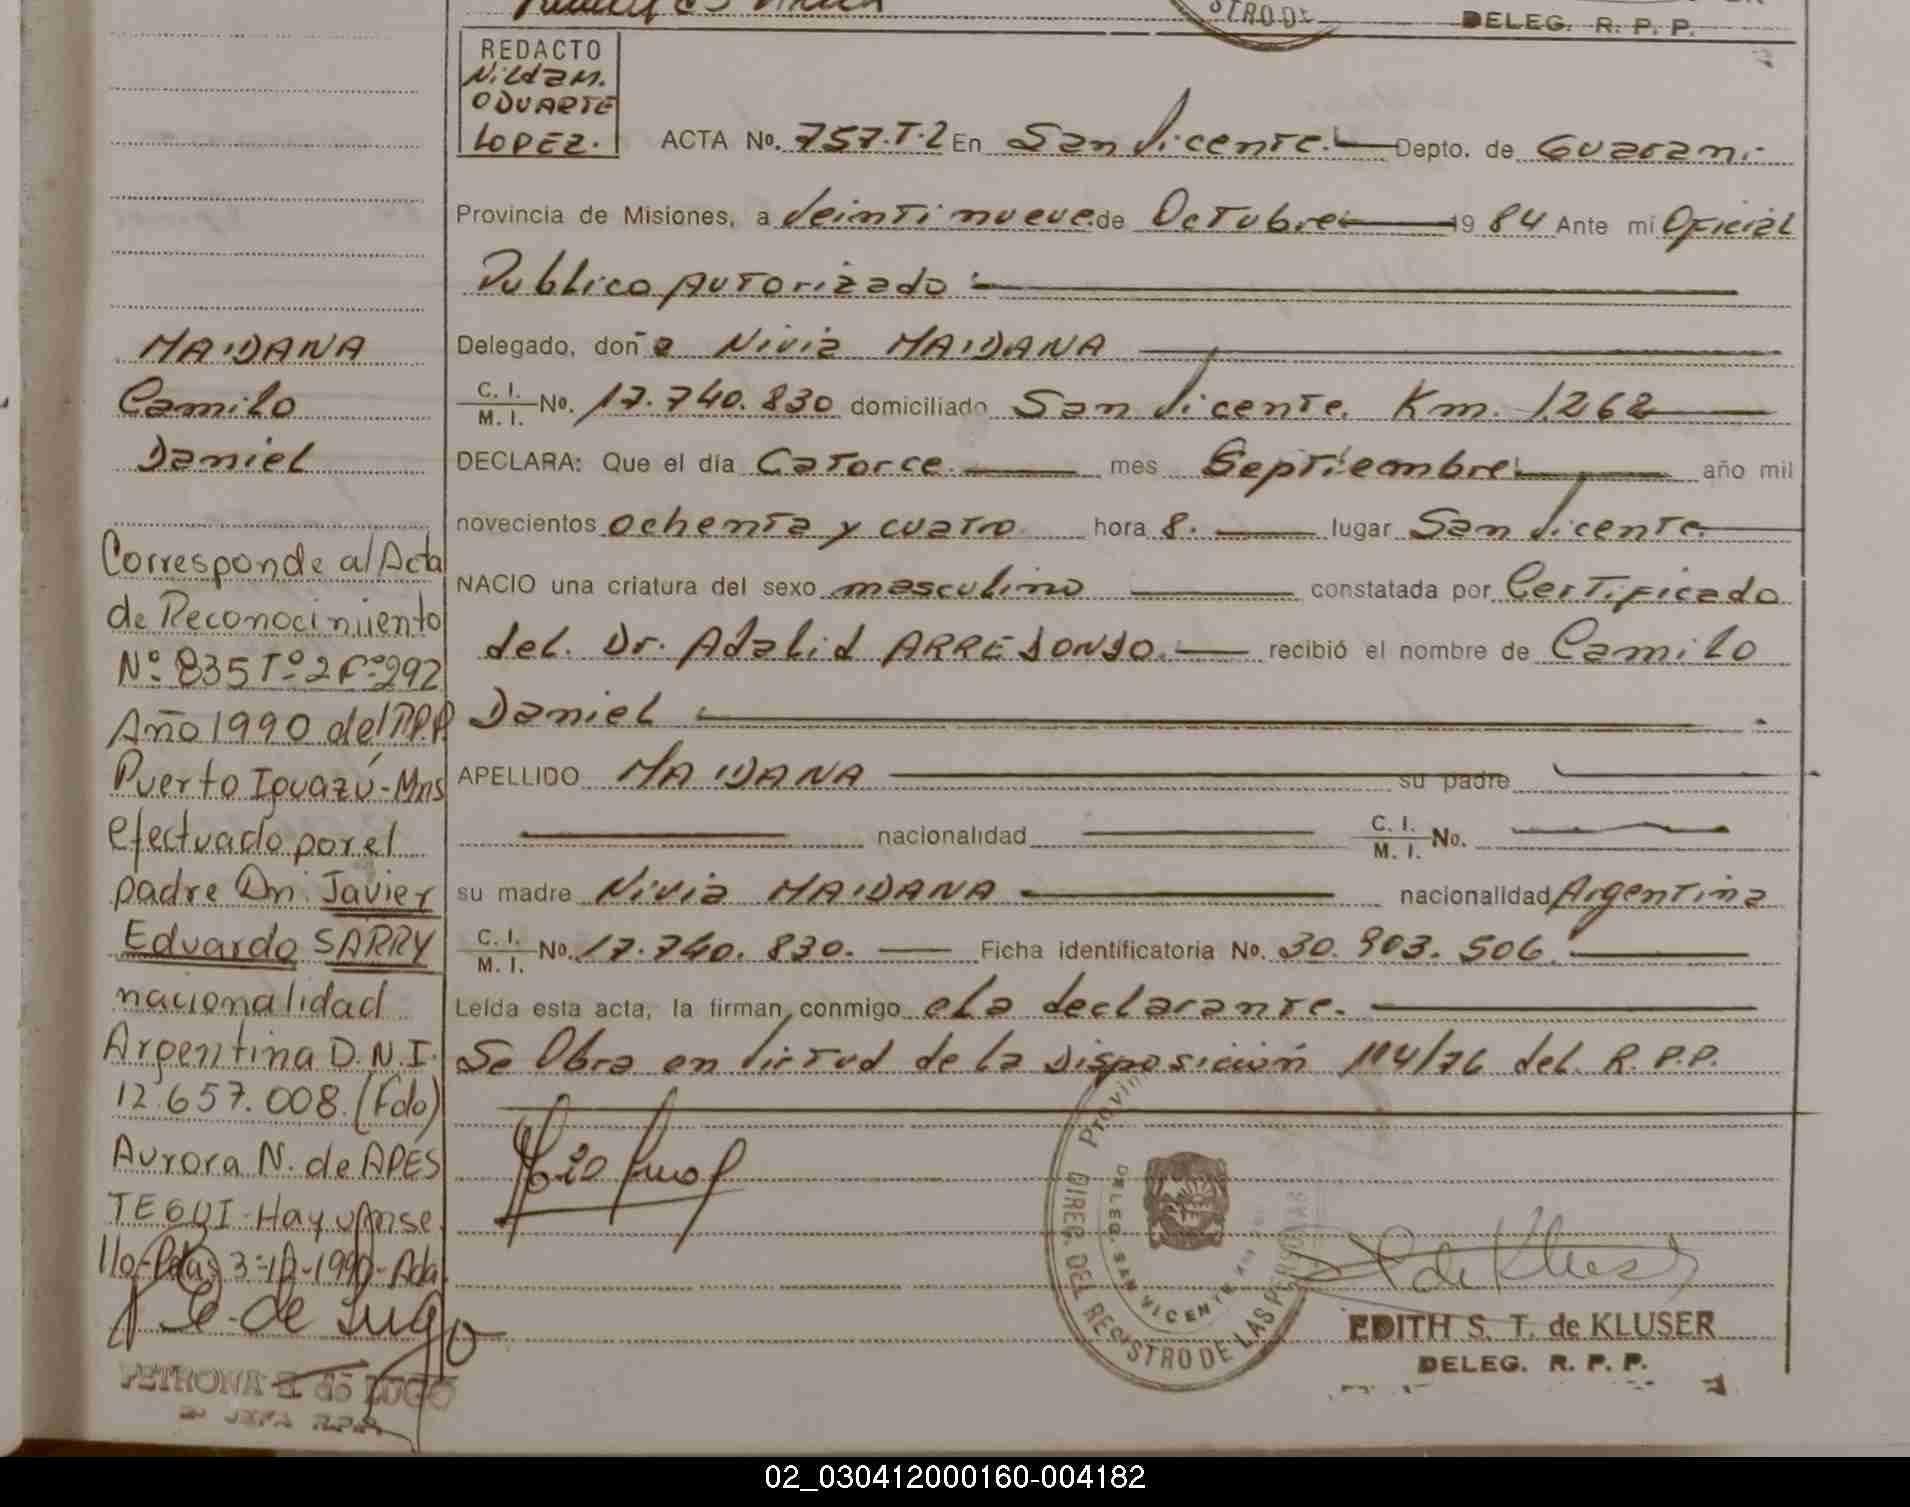 STRO DE
DELEG. R. P. P.
REDACTO
Nilda M.
ODUARTE
LOPEZ.
ACTA No. 757.T.2 En San Vicente. Depto. de Guarani
Provincia de Misiones, a Veintinueve de Octubre 19 84 Ante mi Oficial
Publico Autorizado
Delegado, doña Nivia MAIDANA
C. I.
M. I. No. 17.740.830 domiciliado San Vicente. Km. 1262
DECLARA: Que el día Catorce. mes Septiembre año mil
novecientos ochenta y cuatro hora 8. lugar San Vicente
NACIO una criatura del sexo masculino constatada por Certificado
del. Dr. Adalid ARREDONDO. recibió el nombre de Camilo
Daniel
APELLIDO MAIDANA su padre
nacionalidad C. I.
M. I. No.
su madre Nivia MAIDANA nacionalidad Argentina
C. I.
M. I. No. 17.740.830. Ficha identificatoria No. 30.903.506.
Leída esta acta, la firman conmigo ela declarante.
Se Obra en Virtud de la Disposición 114/76 del R.P.P.
Provin
DIREC. DEL REGISTRO DE LAS PERSONAS
DELEG. SAN VICENTE
EDITH S. T. de KLUSER
DELEG. R. P. P.
MAIDANA
Camilo
Daniel
Corresponde al Acta
de Reconocimiento
Nº 835 Tº 2 Fº 292
Año 1990 del R.P.P
Puerto Iguazú-Mns
efectuado por el
padre Dn. Javier
Eduardo SARRY
nacionalidad
Argentina D.N.I.
12.657.008.(Fdo)
Aurora N. de APES
TEGUI-Hay un se
llo-Pdas
de Lugo
PETRONA E. de LUGO
JEFA R.P.P.
02_030412000160-004182